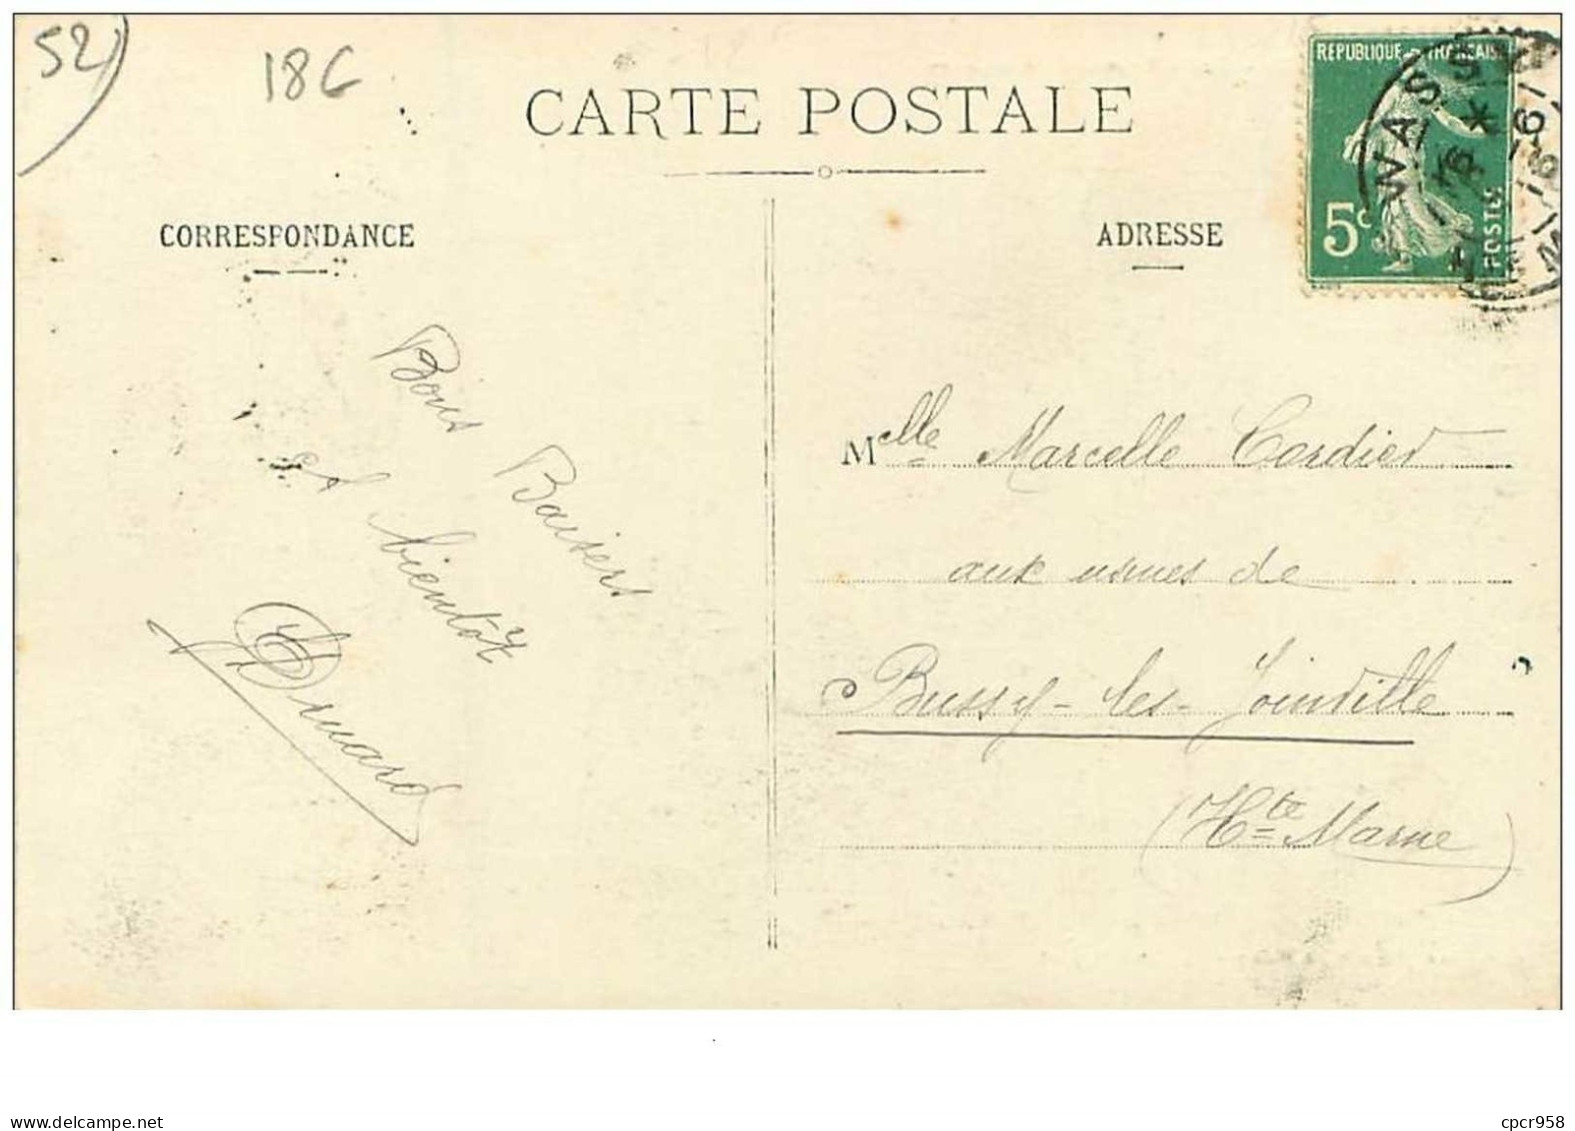 52
18C
CARTE POSTALE
CORRESPONDANCE
ADRESSE
REPUBLIQUE FRANCAISE
5c
POSTES
WASSY
Bons Baisers
et bientôt
Melle Marcelle Cordier
aux usines de
Bussy-les-Joinville
(Hte Marne)
www.delcampe.net
cpcr958